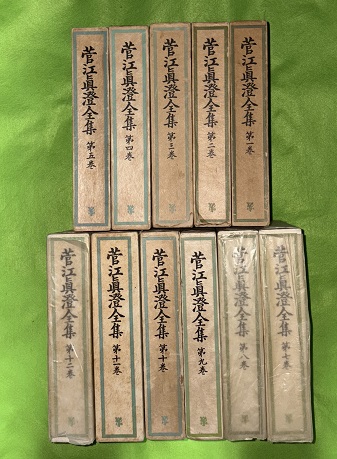 菅江眞澄全集 第一巻
菅江眞澄全集 第二巻
菅江眞澄全集 第三巻
菅江眞澄全集 第四巻
菅江眞澄全集 第五巻
菅江眞澄全集 第七巻
菅江眞澄全集 第八巻
菅江眞澄全集 第九巻
菅江眞澄全集 第十巻
菅江眞澄全集 第十一巻
菅江眞澄全集 第十二巻